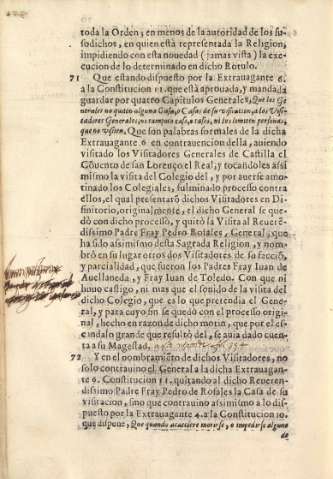 toda la Orden; en menos de la autoridad de los su-
sodichos, en quien està representada la Religion,
impidiendo con esta nouedad (jamas vista) la exe-
cucion de lo determinado en dicho Rotulo.
71 Que estando dispuesto por la Extrauagante 6.
a la Constitucion 11. que està aprouada, y mandada
guardar por quatro Capitulos Generales, Que los Ge-
nerales no quiten alguna Casa, o Casas de su visitacion, a los Visi-
tadores Generales; ni tampoco casa, o casas, ni los
que no visiten. Que son palabras formales de la dicha
Extrauagante 6 en contrauencion della, auiendo
visitado los Visitadores Generales de Castilla el
Cõuento de san Lorenço el Real, y tocandoles assi
mismo la visita del Colegio del, y por auerse amo-
tinado los Colegiales, fulminado processo contra
ellos, el qual presentarõ dichos Visitadores en Di-
finitorio, originalmente, el dicho General se que-
dò con dicho processo, y quitò la Visita al Reuerẽ-
dissimo Padre Fray Pedro Rosales, General, que
ha sido assimismo desta Sagrada Religion, y nom-
brò en su lugar otros dos Visitadores de su facciõ,
y parcialidad, que fueron los Padres Fray Iuan de
Auellaneda, y Fray Iuan de Toledo. Con que ni
huuo castigo, ni mas que el sonido de la visita del
dicho Colegio, que es lo que pretendia el Gene-
ral, y para cuyo fin se quedò con el processo origi-
nal, hecho en razon de dicho motin, que por el es-
candalo grande que resultò del, se auia dado cuen-
ta a su Magestad.
72 Y en el nombramiẽto de dichos Visitadores, no
solo contrauino el General a la dicha Extrauagan-
te 6. Constitucion 11. quitando al dicho Reueren-
dissimo Padre Fray Pedro de Rosales la Casa de su
visitacion, sino que contrauino assimismo a lo dis-
puesto por la Extrauagante 4. a la Constitucion 10.
que dispone, Que quando acaeciere morirse, o impedirse alguno
de